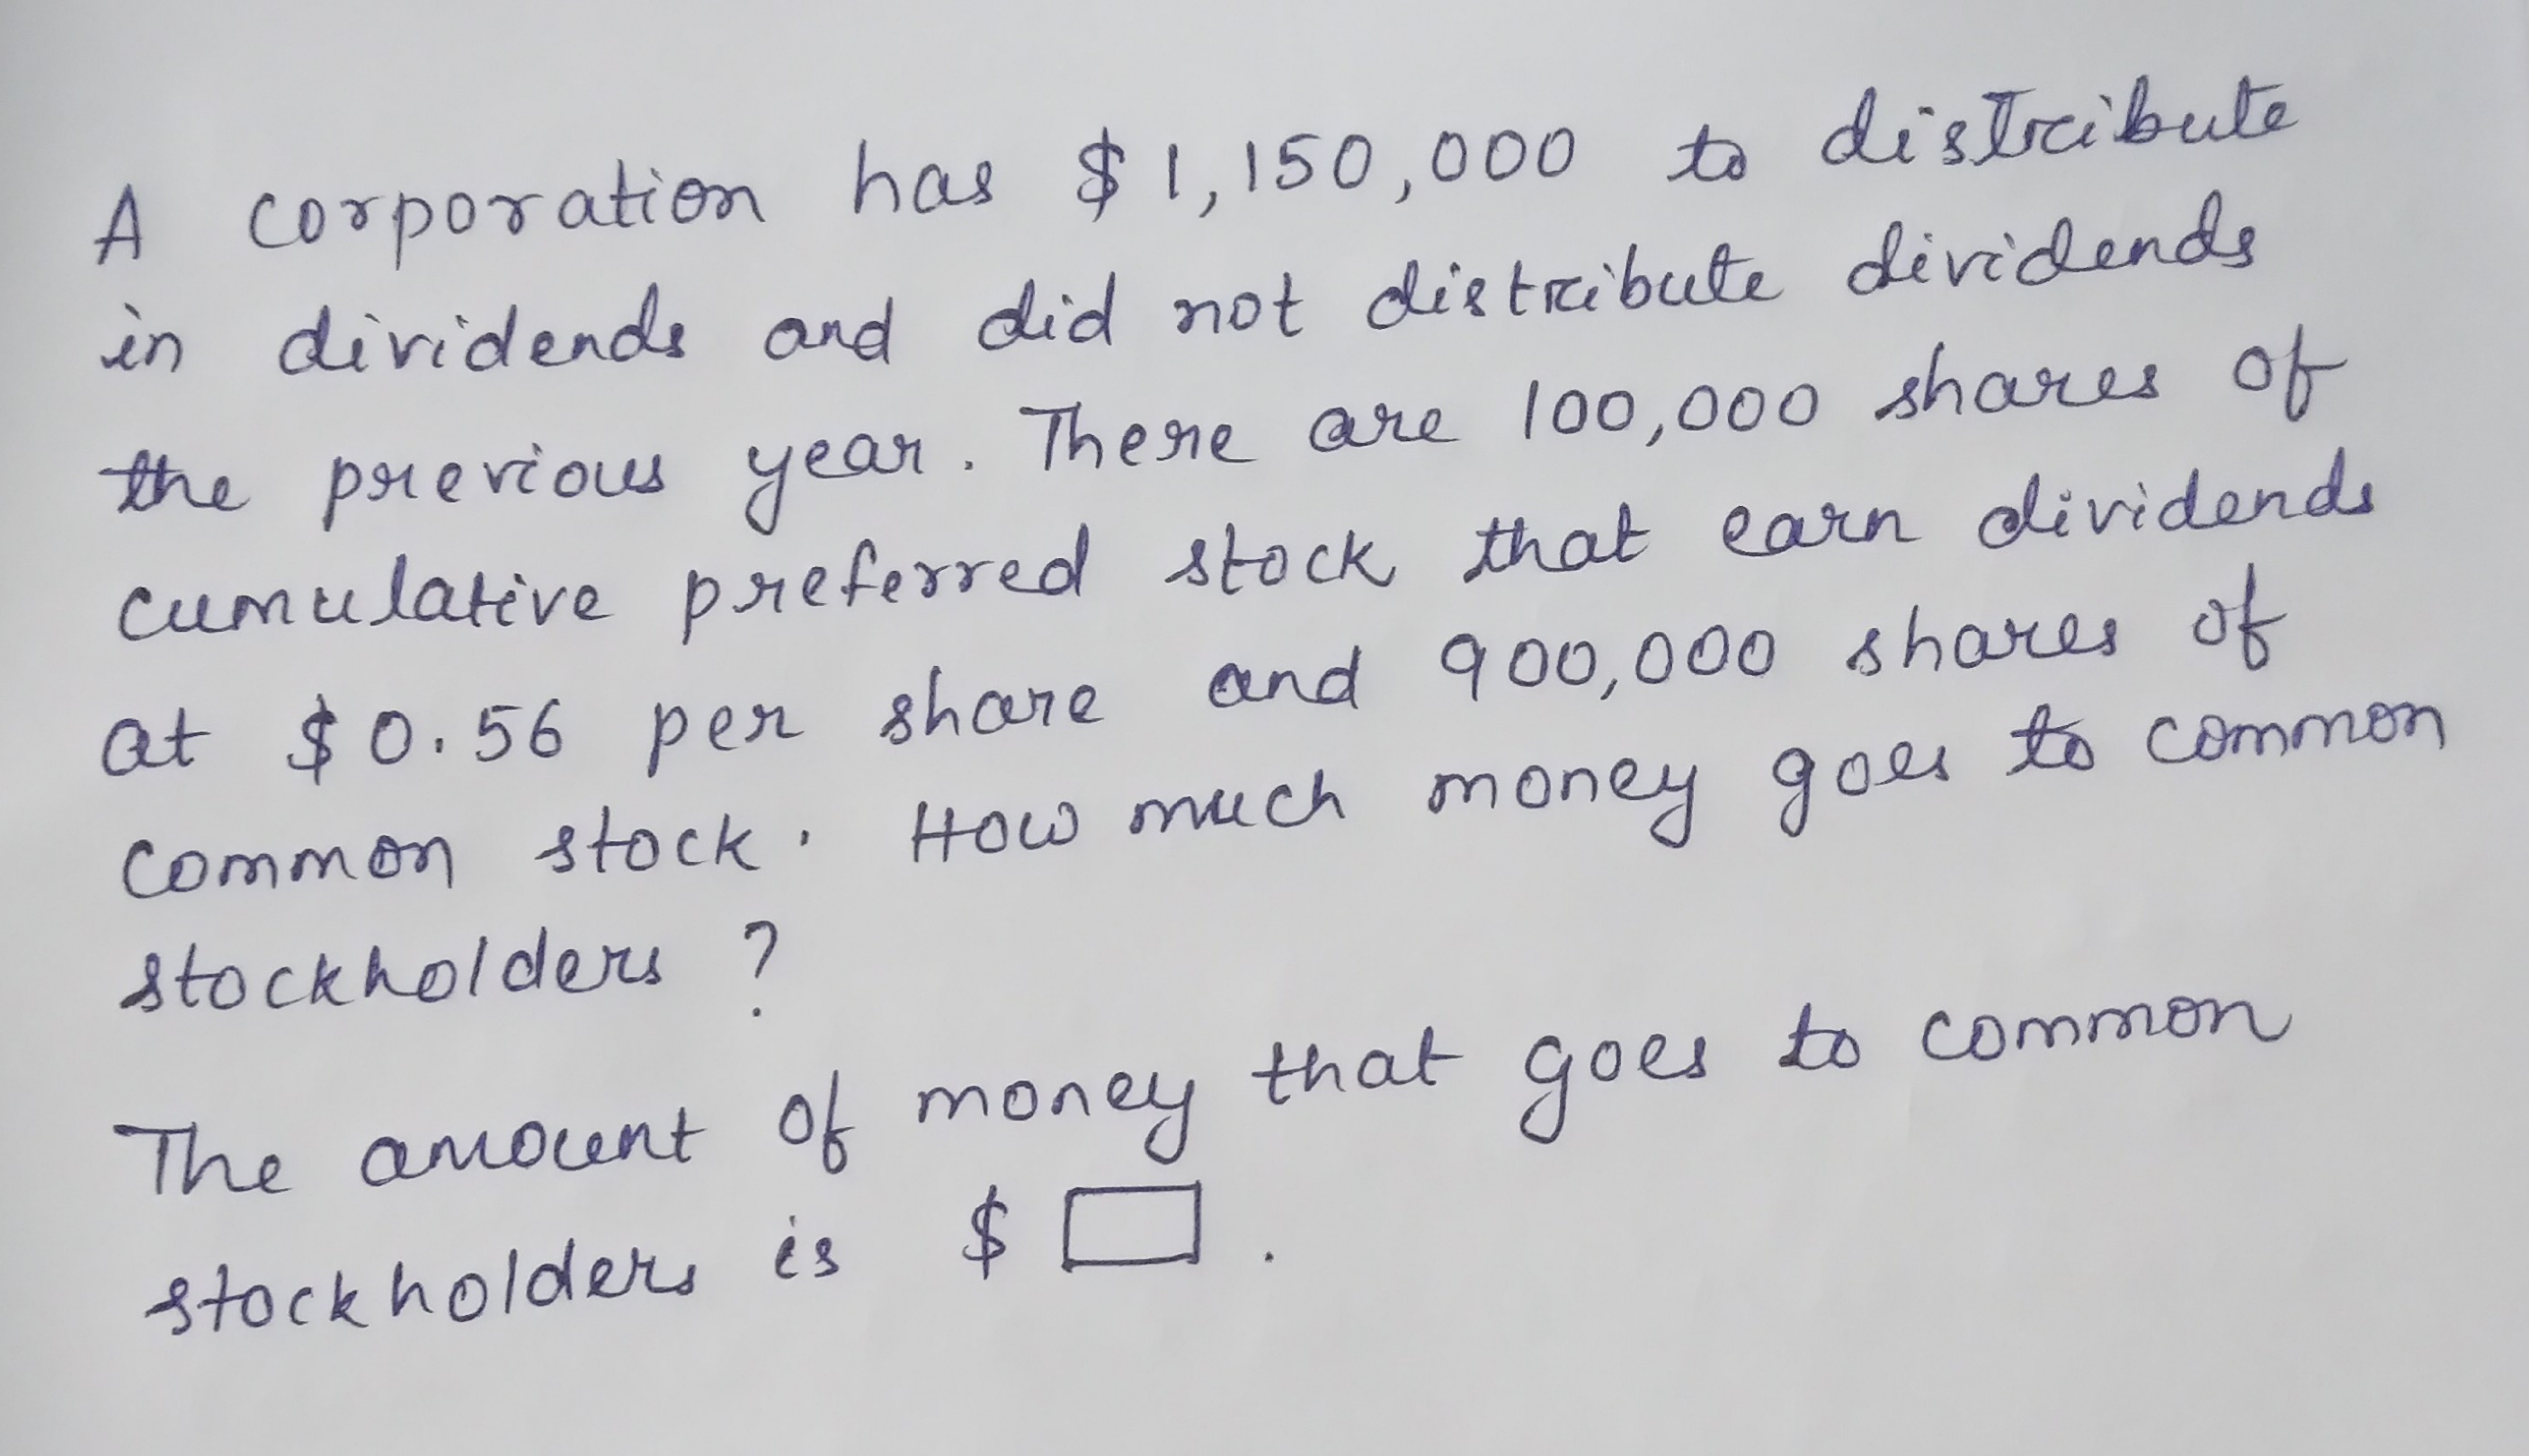 A corporation has $1,150,000 to distribute
in dividends and did not distribute dividends
the previous year. There are 100,000 shares of
cumulative preferred stock that earn dividends
at $0.56 per share and 900,000 shares of
common stock. How much money goes to common
stockholders ?
The amount of money that goes to common
stockholders is $ .